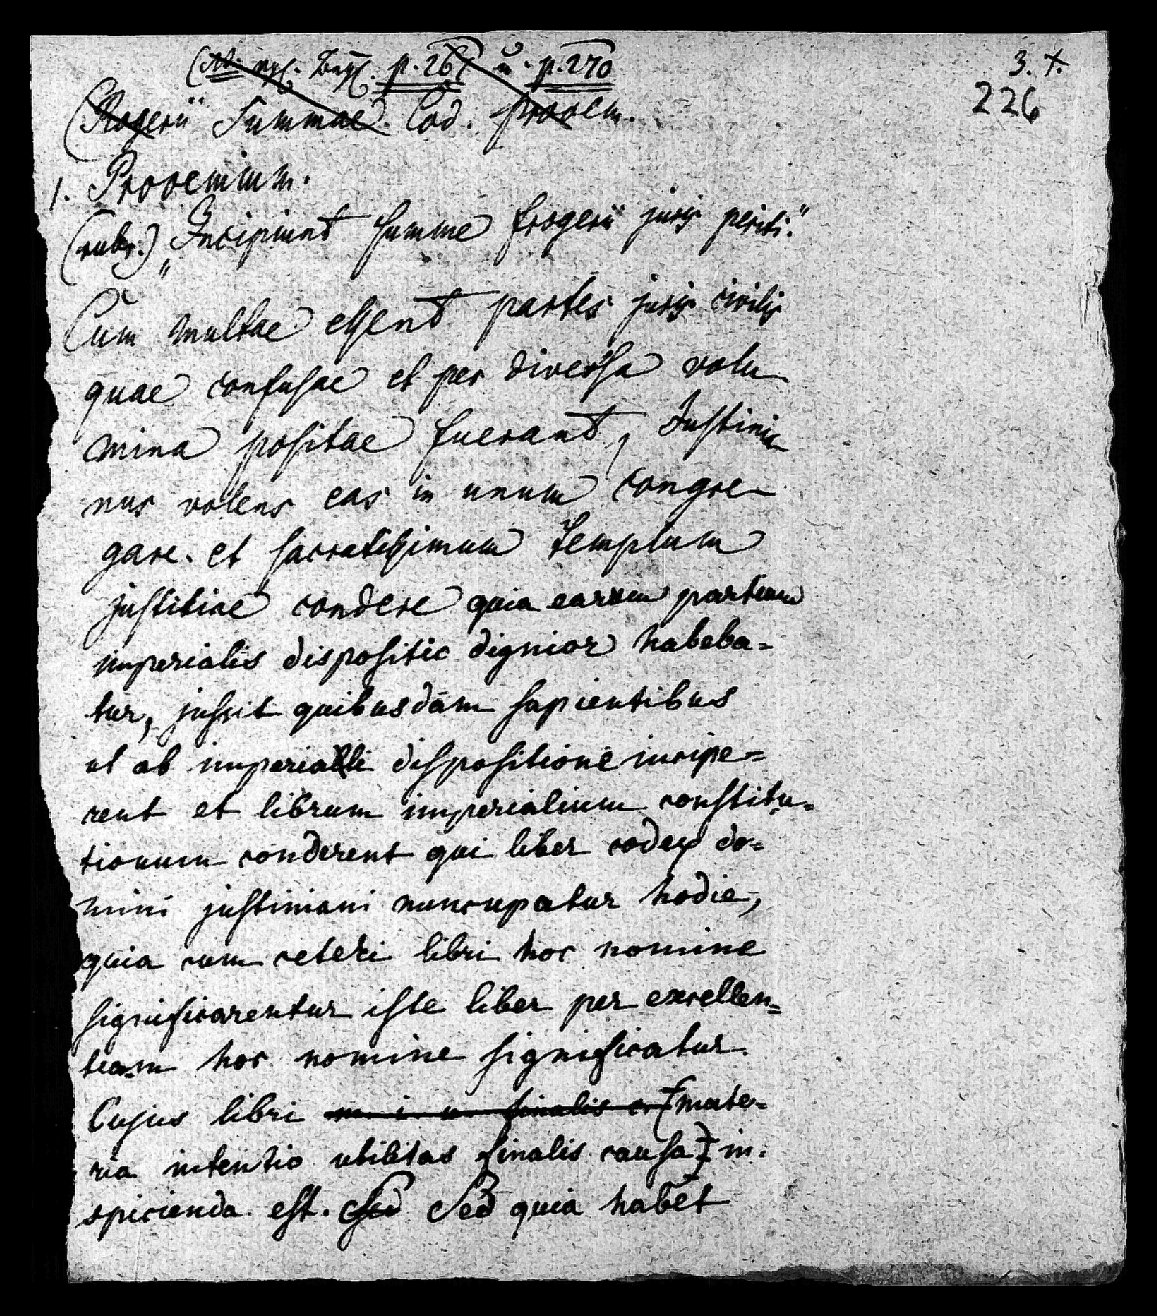 p. 267 u. p. 270
3. X.
226
(Rogerii Summae. Cod. prooem.
1. Prooemium.
(rubr.) „Incipiunt summe frogerii juris periti.“
Cum multae essent partes juris civilis
quae confusae et per diversa volu
mina positae fuerant, Justinia
nus volens eas in unum congre
gare. et sacratissimum templum
justitiae condere quia earum partium
imperialis dispositio dignior habeba=
tur, jussit quibusdam sapientibus
ut ab imperialli dispositione incipe=
rent et librum imperialium constitu=
tionum conderent qui liber codex do=
mini justiniani nuncupatur hodie,
quia cum ceteri libri hoc nomine
significarentur iste liber per excellen=
tiam hoc nomine significatur.
Cujus libri m. i. u. finalis c. [mate=
ria intentio utilitas finalis causa] in=
spicienda est. Sed Sed quia habet